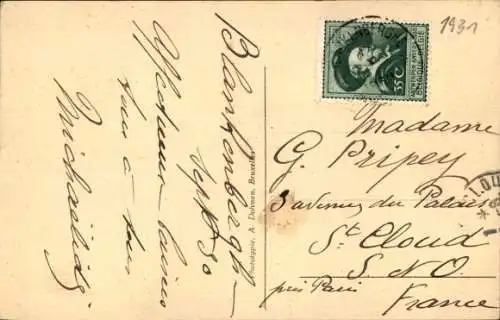 1931
35c
Blankenberghe
Sept 30
Affectueux baisers
tous à tous
Michaëlidis
Phototypie, A. Dohmen, Bruxelles
Madame
G. Pripey
3 avenue du Palais
St Cloud
S. & O.
près Paris
France